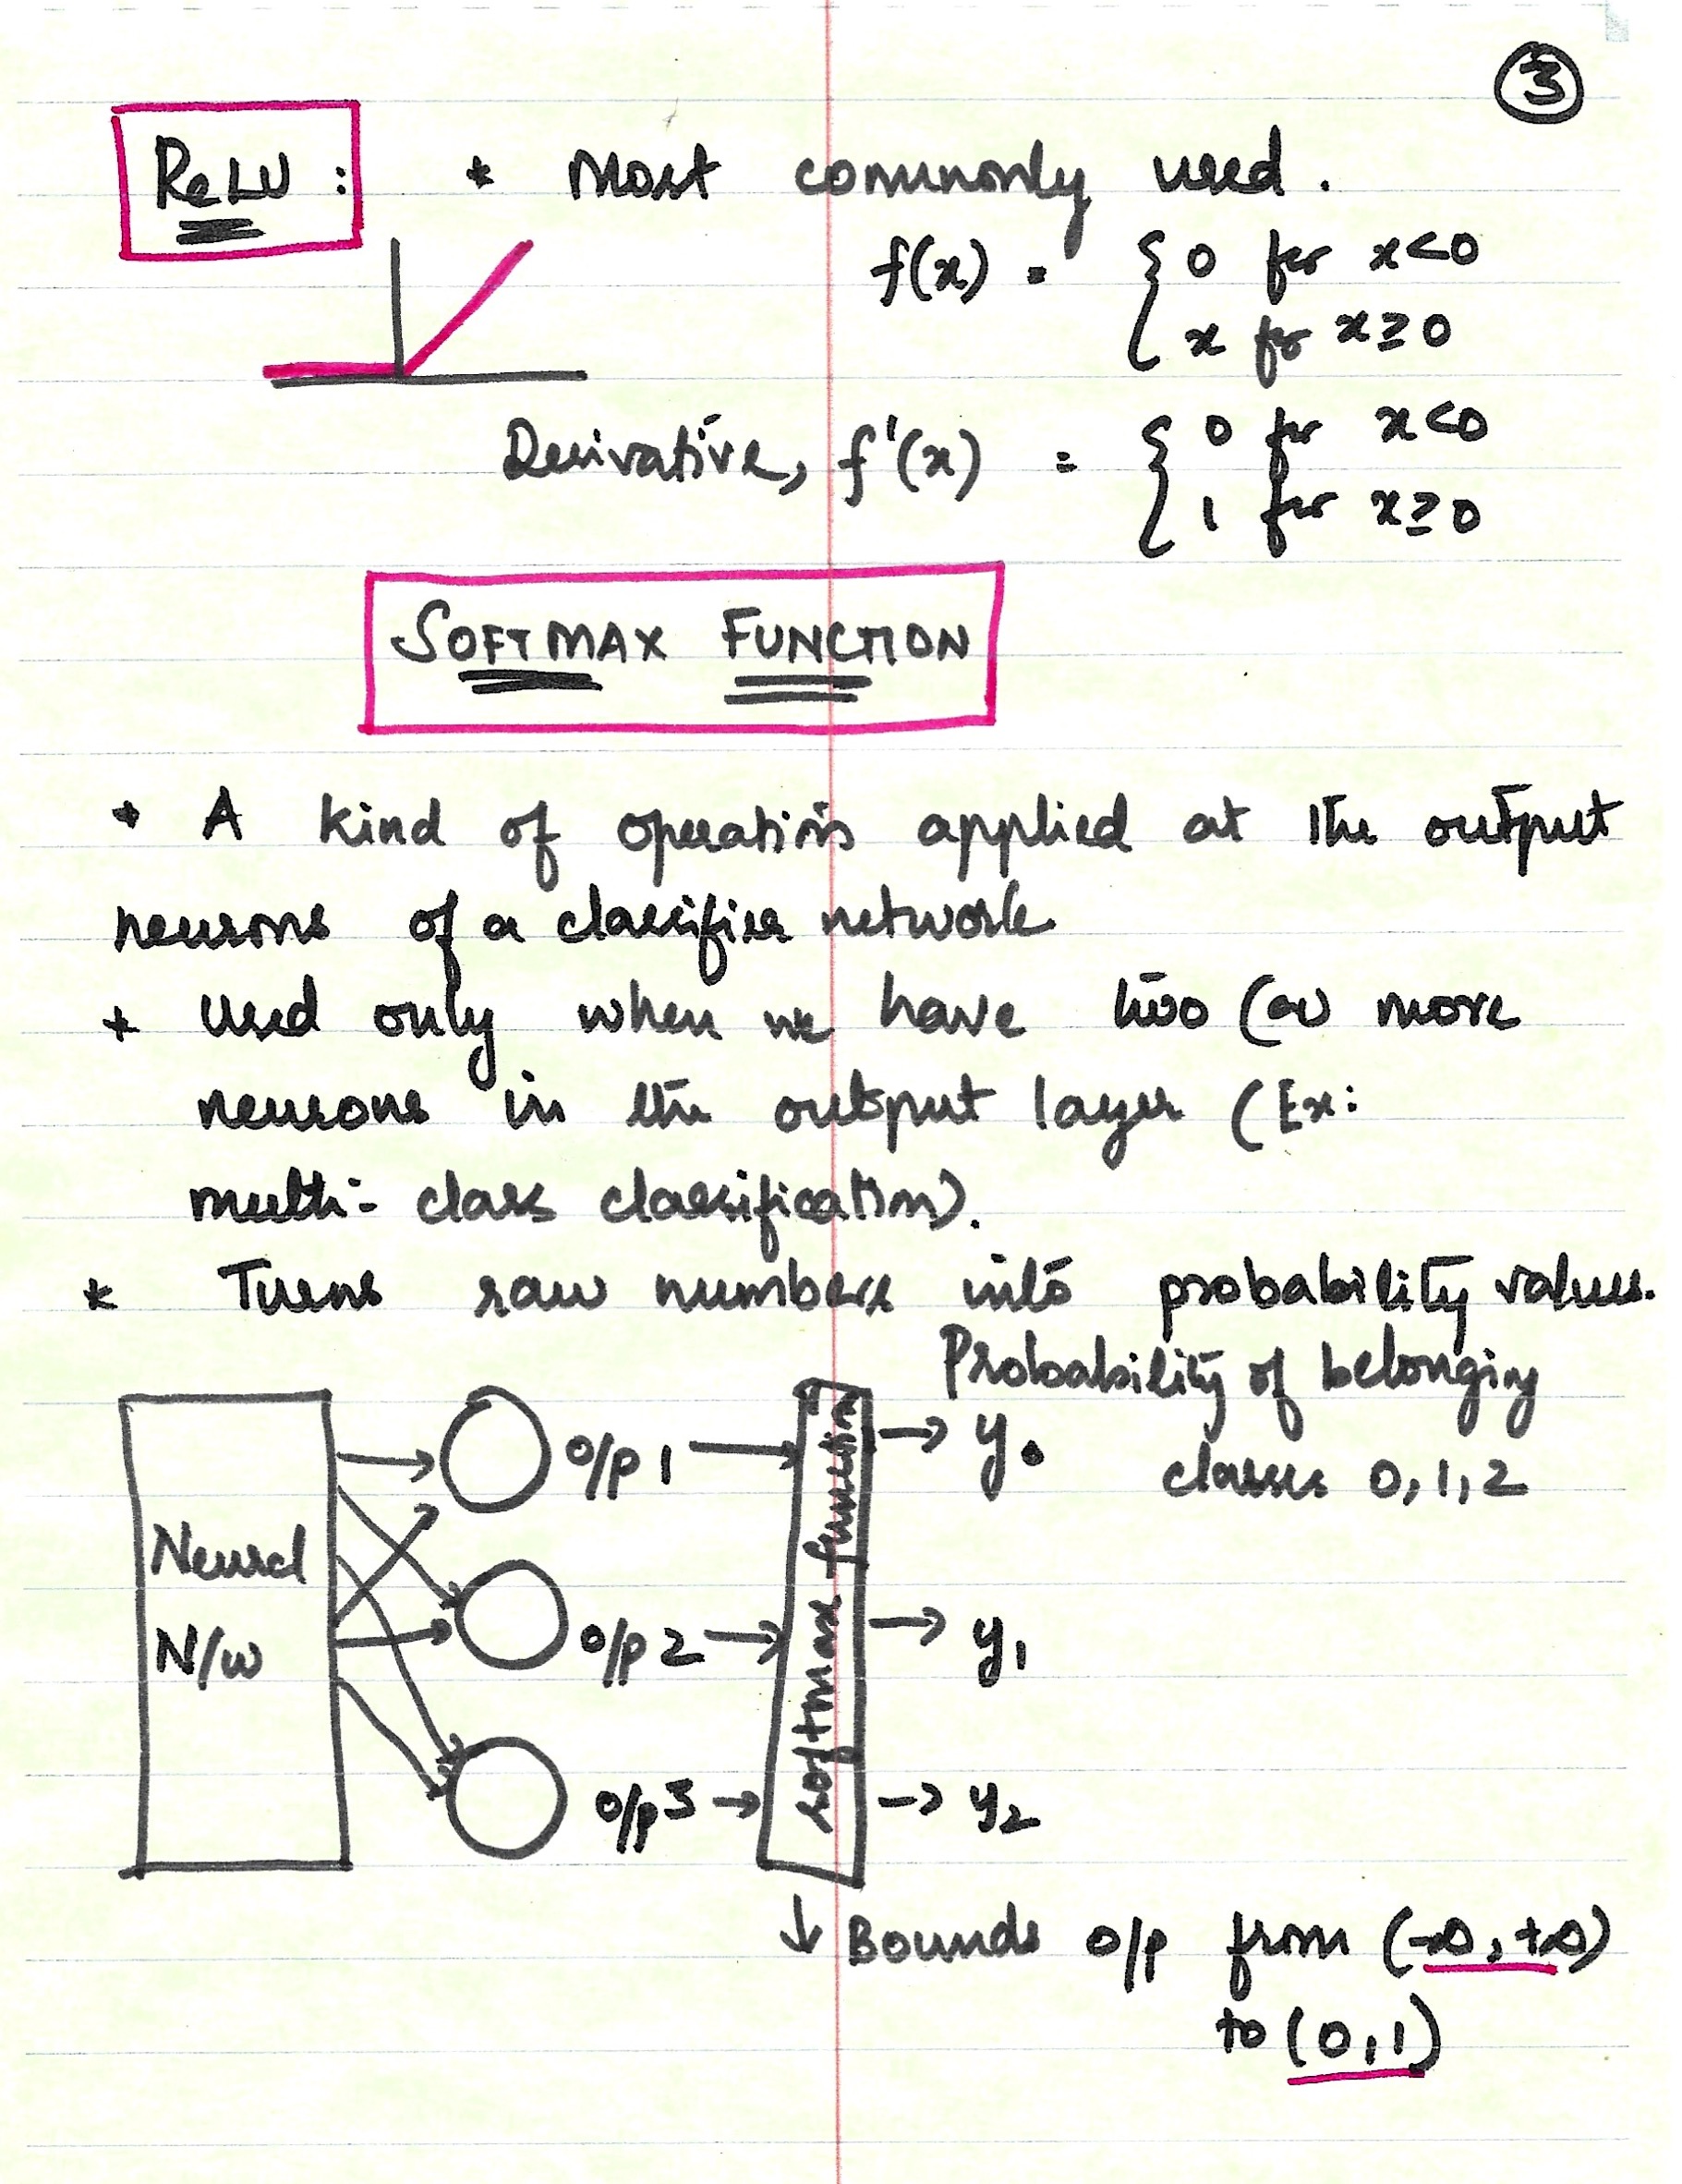 3
ReLU : * Most commonly used.
f(x) = { 0 for x<0
{ x for x≥0
Derivative, f'(x) = { 0 for x<0
{ 1 for x≥0
SOFTMAX FUNCTION
* A kind of operation applied at the output
neurons of a classifier network
* Used only when we have two (or more
neurons in the output layer (Ex:
multi-class classification).
* Turns raw numbers into probability values.
Probability of belonging
classes 0,1,2
Neural
N/w
o/p 1
o/p 2
o/p 3
softmax function
y0
y1
y2
↓ Bounds o/p from (-∞, +∞)
to (0,1)